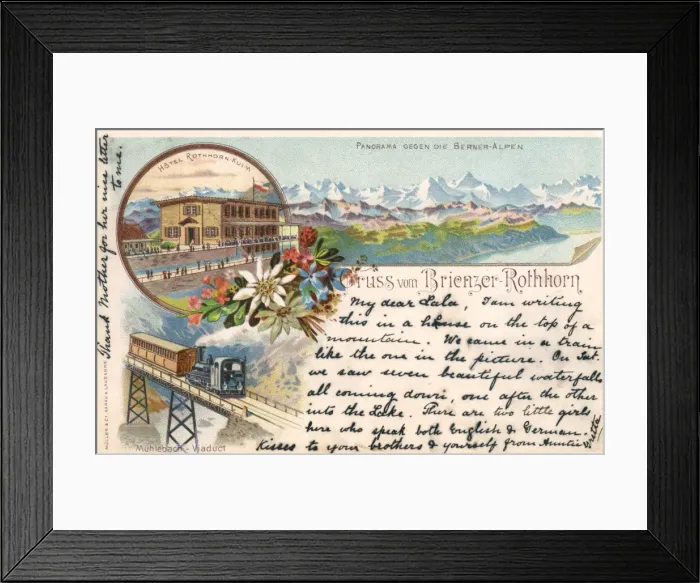 PANORAMA GEGEN DIE BERNER-ALPEN
HÔTEL ROTHHORN-KULM
Gruss vom Brienzer-Rothhorn
My dear Lala, I am writing
this in a house on the top of a
mountain. We came in a train
like the one in the picture. On Sat.
we saw seven beautiful waterfalls
all coming down, one after the other
into the Lake. There are two little girls
here who speak both English & German.
Kisses to your brothers & yourself from Auntie
Mühlebach-Viaduct
Thank Mother for her nice letter
to me.